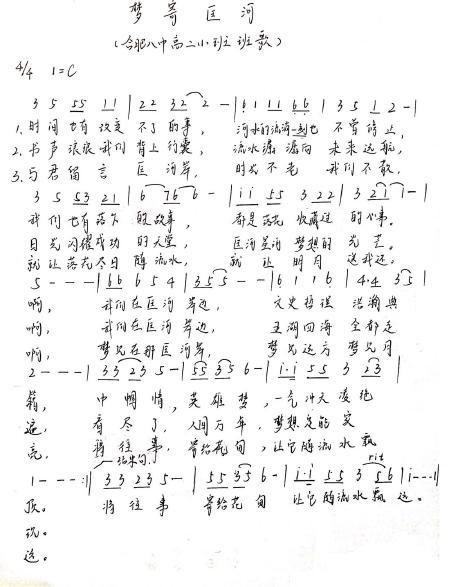 梦寄匡河
(合肥八中高二小班班歌)
4/4 1=C
3 5 55 11 | 22 32 2 - | 61 11 66 | 3 5 1 2 - |
1. 时间也有改变不了的事, 河水的流淌一刻也不曾停止,
2. 书声琅琅我们背上行囊, 流水潺潺向未来远航,
3. 与君留言匡河岸, 时光不老我们不散,
3 5 53 21 | 6 76 6 - | ii 55 3 22 | 3 21 1 - |
我们也有落欠的故事, 都是落花收藏过的心事。
目光闪耀成功的天堂, 匡河是河梦想的光芒。
就让落花尽日随流水, 就让明月送我还。
5 - - - | 66 6 5 4 | 35 5 - - | 6 1 1 6 | 4·4 35 |
啊, 我们在匡河岸边, 文史哲理浩瀚典
啊, 我们在匡河岸边, 五湖四海全都走
啊, 梦见在那匡河岸, 梦见远方梦见月
2 - - - | 33 23 5 - | 55 35 6 - | i·i 55 3 23 |
籍, 巾帼情,英雄梦,一气冲天凌绝
遍, 看尽了,人间万年,梦想定能实
亮, 将往事,寄给花甸,让它随流水飘
1 - - - :| 结束句 33 23 5 - | 55 35 6 - | i·i 55 3 56 | i - - - ||
rit
顶。 将往事 寄给花甸 让它随流水飘远。
现。
远。